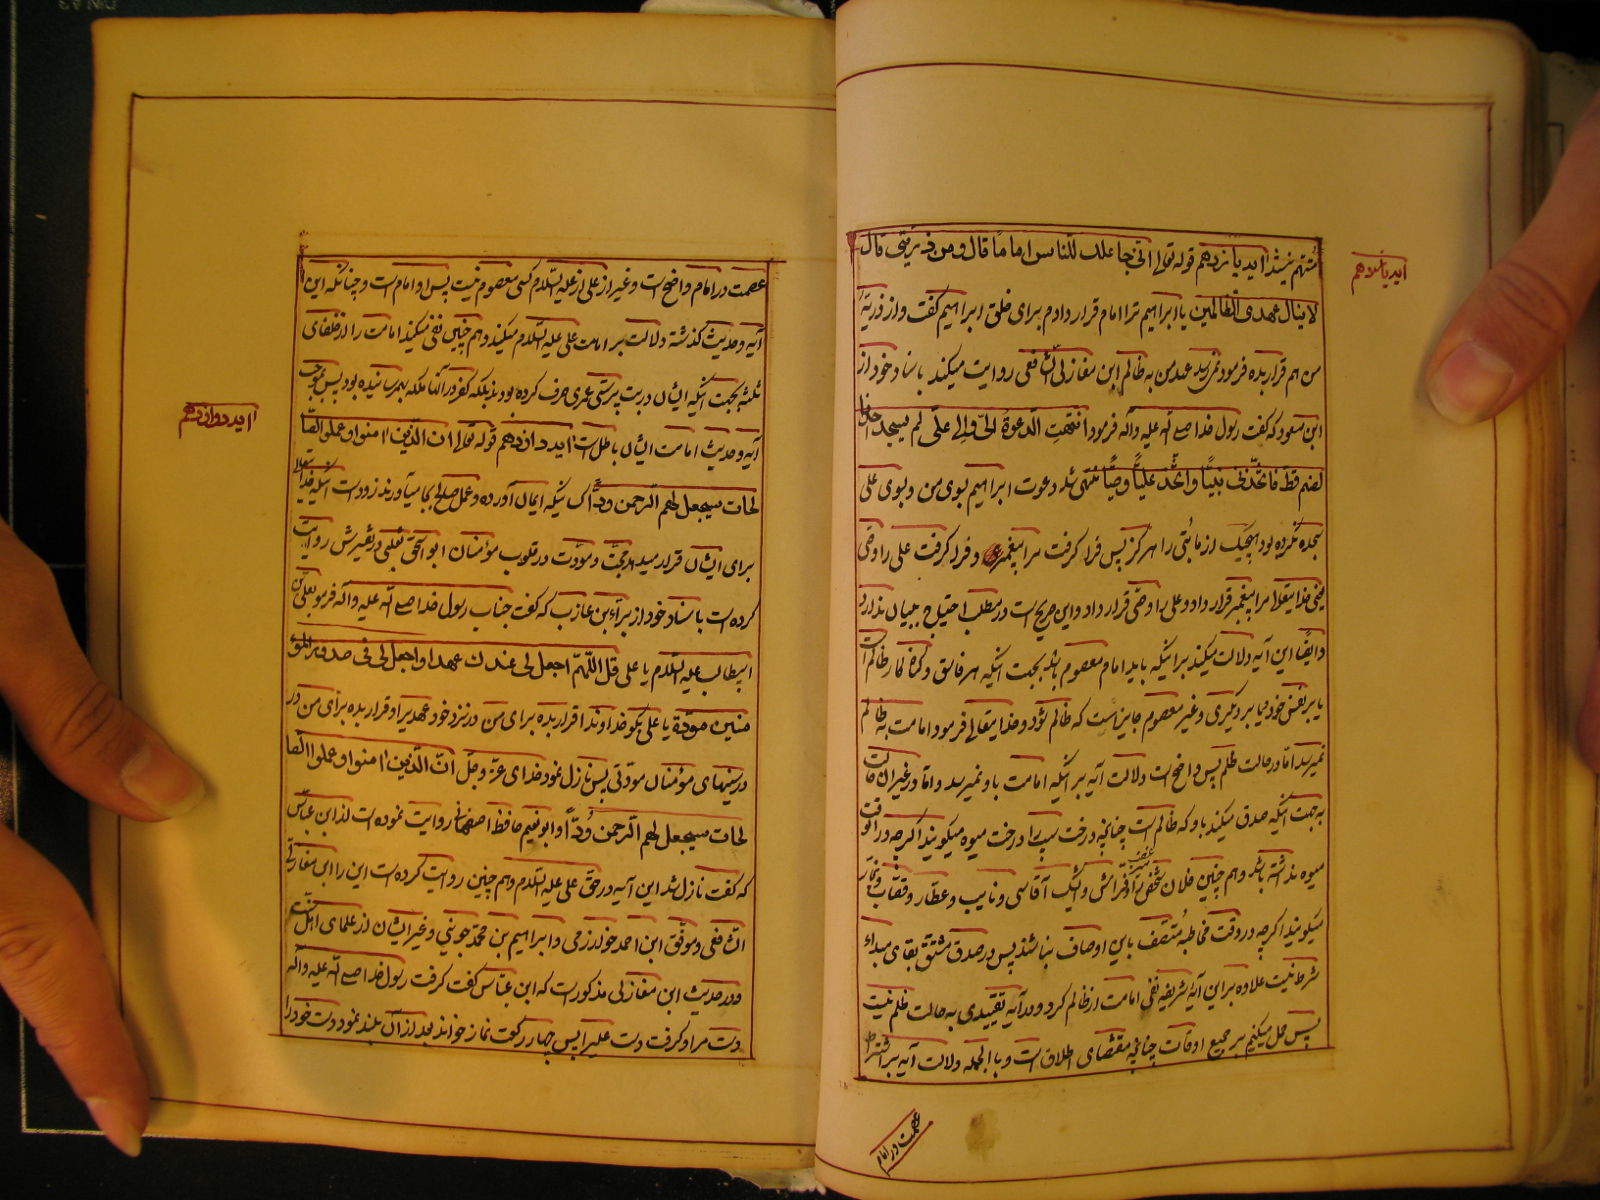 متنهم نیشد ایه یازدهم قوله تعالی انی جاعلک للناس اماما قال ومن ذریتی قال
ایه یازدهم
لا ینال عهدی الظالمین یا ابراهیم ترا امام قرار دادم برای خلق ابراهیم گفت و از ذریه
من هم قرار بده فرمود نمیرسد عهد من به ظالم ابن مغازلی الشافعی روایت میکند باسناد خود از
ابن مسعود که گفت رسول خدا صلی الله علیه واله فرمود انتهت الدعوة الی والی علی لم یسجد احدنا
لصنم قط فاتخذنی نبیا واتخذ علیا وصیا منتهی شد دعوت ابراهیم بوی من و بوی علی
سجده نکرده بود هیچیک از ما بتی را هرگز پس فرا گرفت مرا پیغمبر و فرا گرفت علی را وصی
یعنی خدایتعالی مرا پیغمبر قرار داد و علی را وصی قرار داد و این صریح است در مطلب احتیاج ببیان ندارد
و ایضا این آیه دلالت میکند براینکه باید امام معصوم باشد بجهت اینکه هر فاسق و گناه کار ظالم است
یا بر نفس خود یا بر دیگری و غیر معصوم جایز است که ظالم بود و خدایتعالی فرمود امامت به ظالم
نمیرسد اما در حالت ظلم پس واضح است دلالت آیه بر اینکه امامت باو نمیرسد و اما در غیر ان حالت
به جهت اینکه صدق میکند باو که ظالم است چنانچه درخت سیب را درخت میوه میگویند اگرچه در انوقت
میوه نداشته باشد و هم چنین فلان شخص فراش و ایشک آقاسی و نایب و عطار و قصاب و نجار
میگویند اگرچه در وقت مخاطبه متصف باین اوصاف نباشند پس در صدق مشتق بقای مبداء
شرط نیست علاوه بر این آیه شریفه نفی امامت از ظالم کرد و در آیه تقییدی به حالت ظلم نیست
پس حمل میکنیم بر جمیع اوقات چنانچه مقتضای اطلاق است و بالجمله دلالت آیه بر اشتراط
عصمت در امام
عصمت در امام واضح است و غیر از علی از علیه السلام کسی معصوم نیست پس او امام است و چنانکه این
آیه و حدیث گذشته دلالت بر امامت علی علیه السلام میکند و هم چنین نفی میکند امامت را از خلفای
ثلثه بجهت اینکه ایشان در بت پرستی عمری صرف کرده بودند بلکه کفر در آنها ملکه بهم رسانیده بود پس بموجب
آیه و حدیث امامت ایشان باطل است ایه دوازدهم قوله تعالی ان الذین امنوا و عملوا الصا
ایه دوازدهم
لحات سیجعل لهم الرحمن ودا کسانیکه ایمان آورده و عمل صالح بجا میآورند زود است اینکه خدایتعالی
برای ایشان قرار میدهد محبت و مودت در قلوب مؤمنان ابو اسحق ثعلبی در تفسیرش روایت
کرده است باسناد خود از براء بن عازب که گفت جناب رسول خدا صلی الله علیه واله فرمود بعلی بن
ابیطالب علیه السلام یا علی قل اللهم اجعل لی عندک عهدا واجعل لی فی صدور المؤ
منین مودة یا علی بگو خداوندا قرار بده برای من در نزد خود عهدی را و قرار بده برای من در
در سینهای مؤمنان مودتی پس نازل نمود خدای عز و جل ان الذین امنوا و عملوا الصا
لحات سیجعل لهم الرحمن ودا و ابو نعیم حافظ اصفهانی روایت نموده است از ابن عباس
که گفت نازل شد این آیه در حق علی علیه السلام و هم چنین روایت کرده است این را ابن مغازلی
الشافعی و موفق ابن احمد خوارزمی و ابراهیم بن محمد جوینی و غیر ایشان از علمای اهل سنت
و در حدیث ابن مغازلی مذکور است که ابن عباس گفت گرفت رسول خدا صلی الله علیه واله
دست مرا و گرفت دست علی را پس چهار رکعت نماز خواند بعد از آن بلند نمود دست خود را